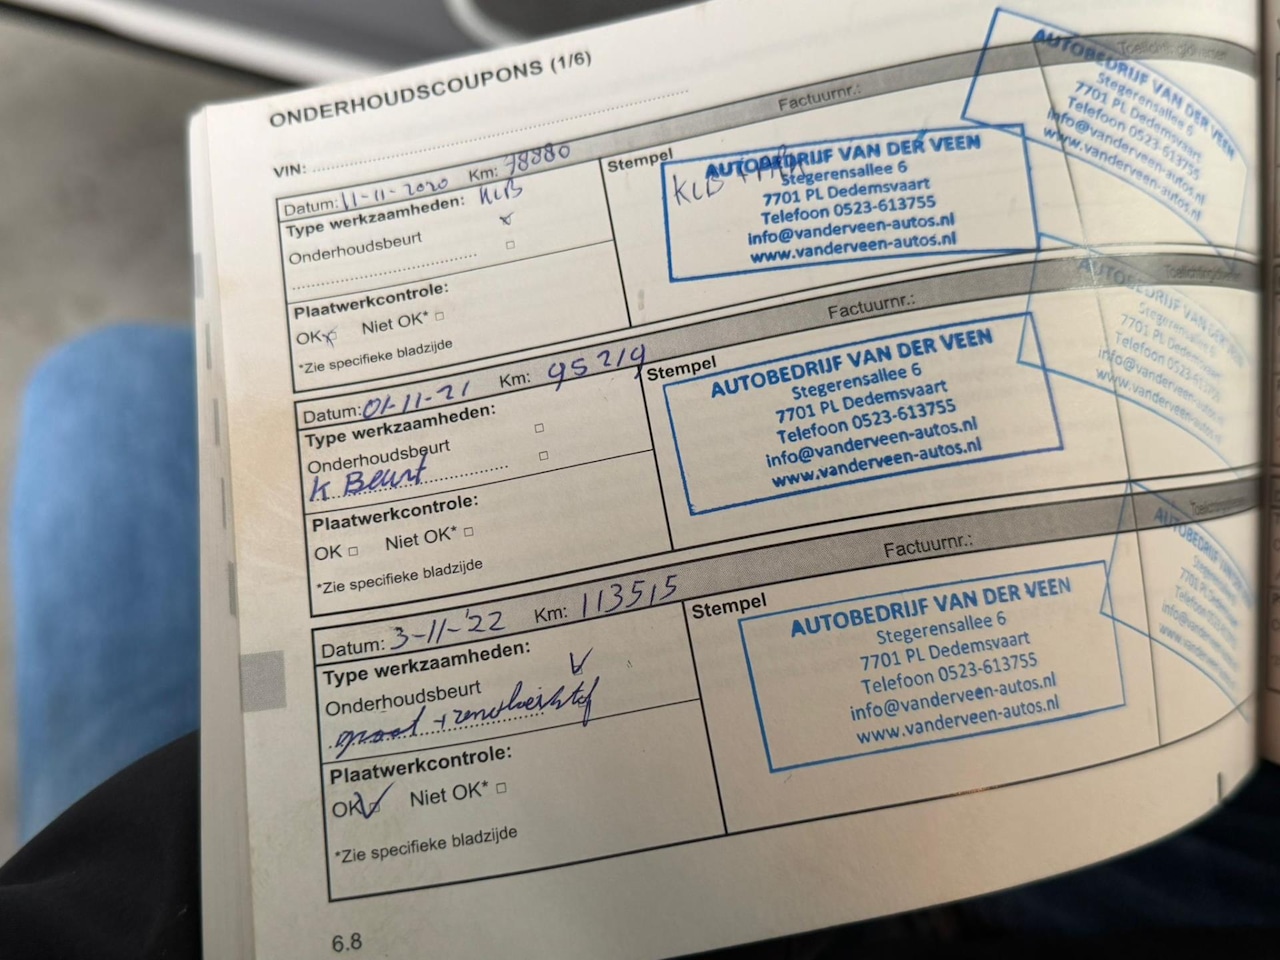 ONDERHOUDSCOUPONS (1/6)
VIN:
Datum: 11-11-2020 Km: 78880 Factuurnr.: Toelichting/diversen
Type werkzaamheden: KLB
Onderhoudsbeurt
Plaatwerkcontrole:
OK Niet OK*
*Zie specifieke bladzijde
Stempel
KLB
AUTOBEDRIJF VAN DER VEEN
Stegerensallee 6
7701 PL Dedemsvaart
Telefoon 0523-613755
info@vanderveen-autos.nl
www.vanderveen-autos.nl
AUTOBEDRIJF VAN DER VEEN
Stegerensallee 6
7701 PL Dedemsvaart
Telefoon 0523-613755
info@vanderveen-autos.nl
www.vanderveen-autos.nl
Datum: 01-11-21 Km: 95219 Factuurnr.: Toelichting/diversen
Type werkzaamheden:
Onderhoudsbeurt
K Beurt
Plaatwerkcontrole:
OK Niet OK*
*Zie specifieke bladzijde
Stempel
AUTOBEDRIJF VAN DER VEEN
Stegerensallee 6
7701 PL Dedemsvaart
Telefoon 0523-613755
info@vanderveen-autos.nl
www.vanderveen-autos.nl
AUTOBEDRIJF VAN DER VEEN
Stegerensallee 6
7701 PL Dedemsvaart
Telefoon 0523-613755
info@vanderveen-autos.nl
www.vanderveen-autos.nl
Datum: 3-11-'22 Km: 113515 Factuurnr.:
Type werkzaamheden:
Onderhoudsbeurt
groot + remvloeistof
Plaatwerkcontrole:
OK Niet OK*
*Zie specifieke bladzijde
Stempel
AUTOBEDRIJF VAN DER VEEN
Stegerensallee 6
7701 PL Dedemsvaart
Telefoon 0523-613755
info@vanderveen-autos.nl
www.vanderveen-autos.nl
AUTOBEDRIJF
Stegerensallee
7701 PL
6.8